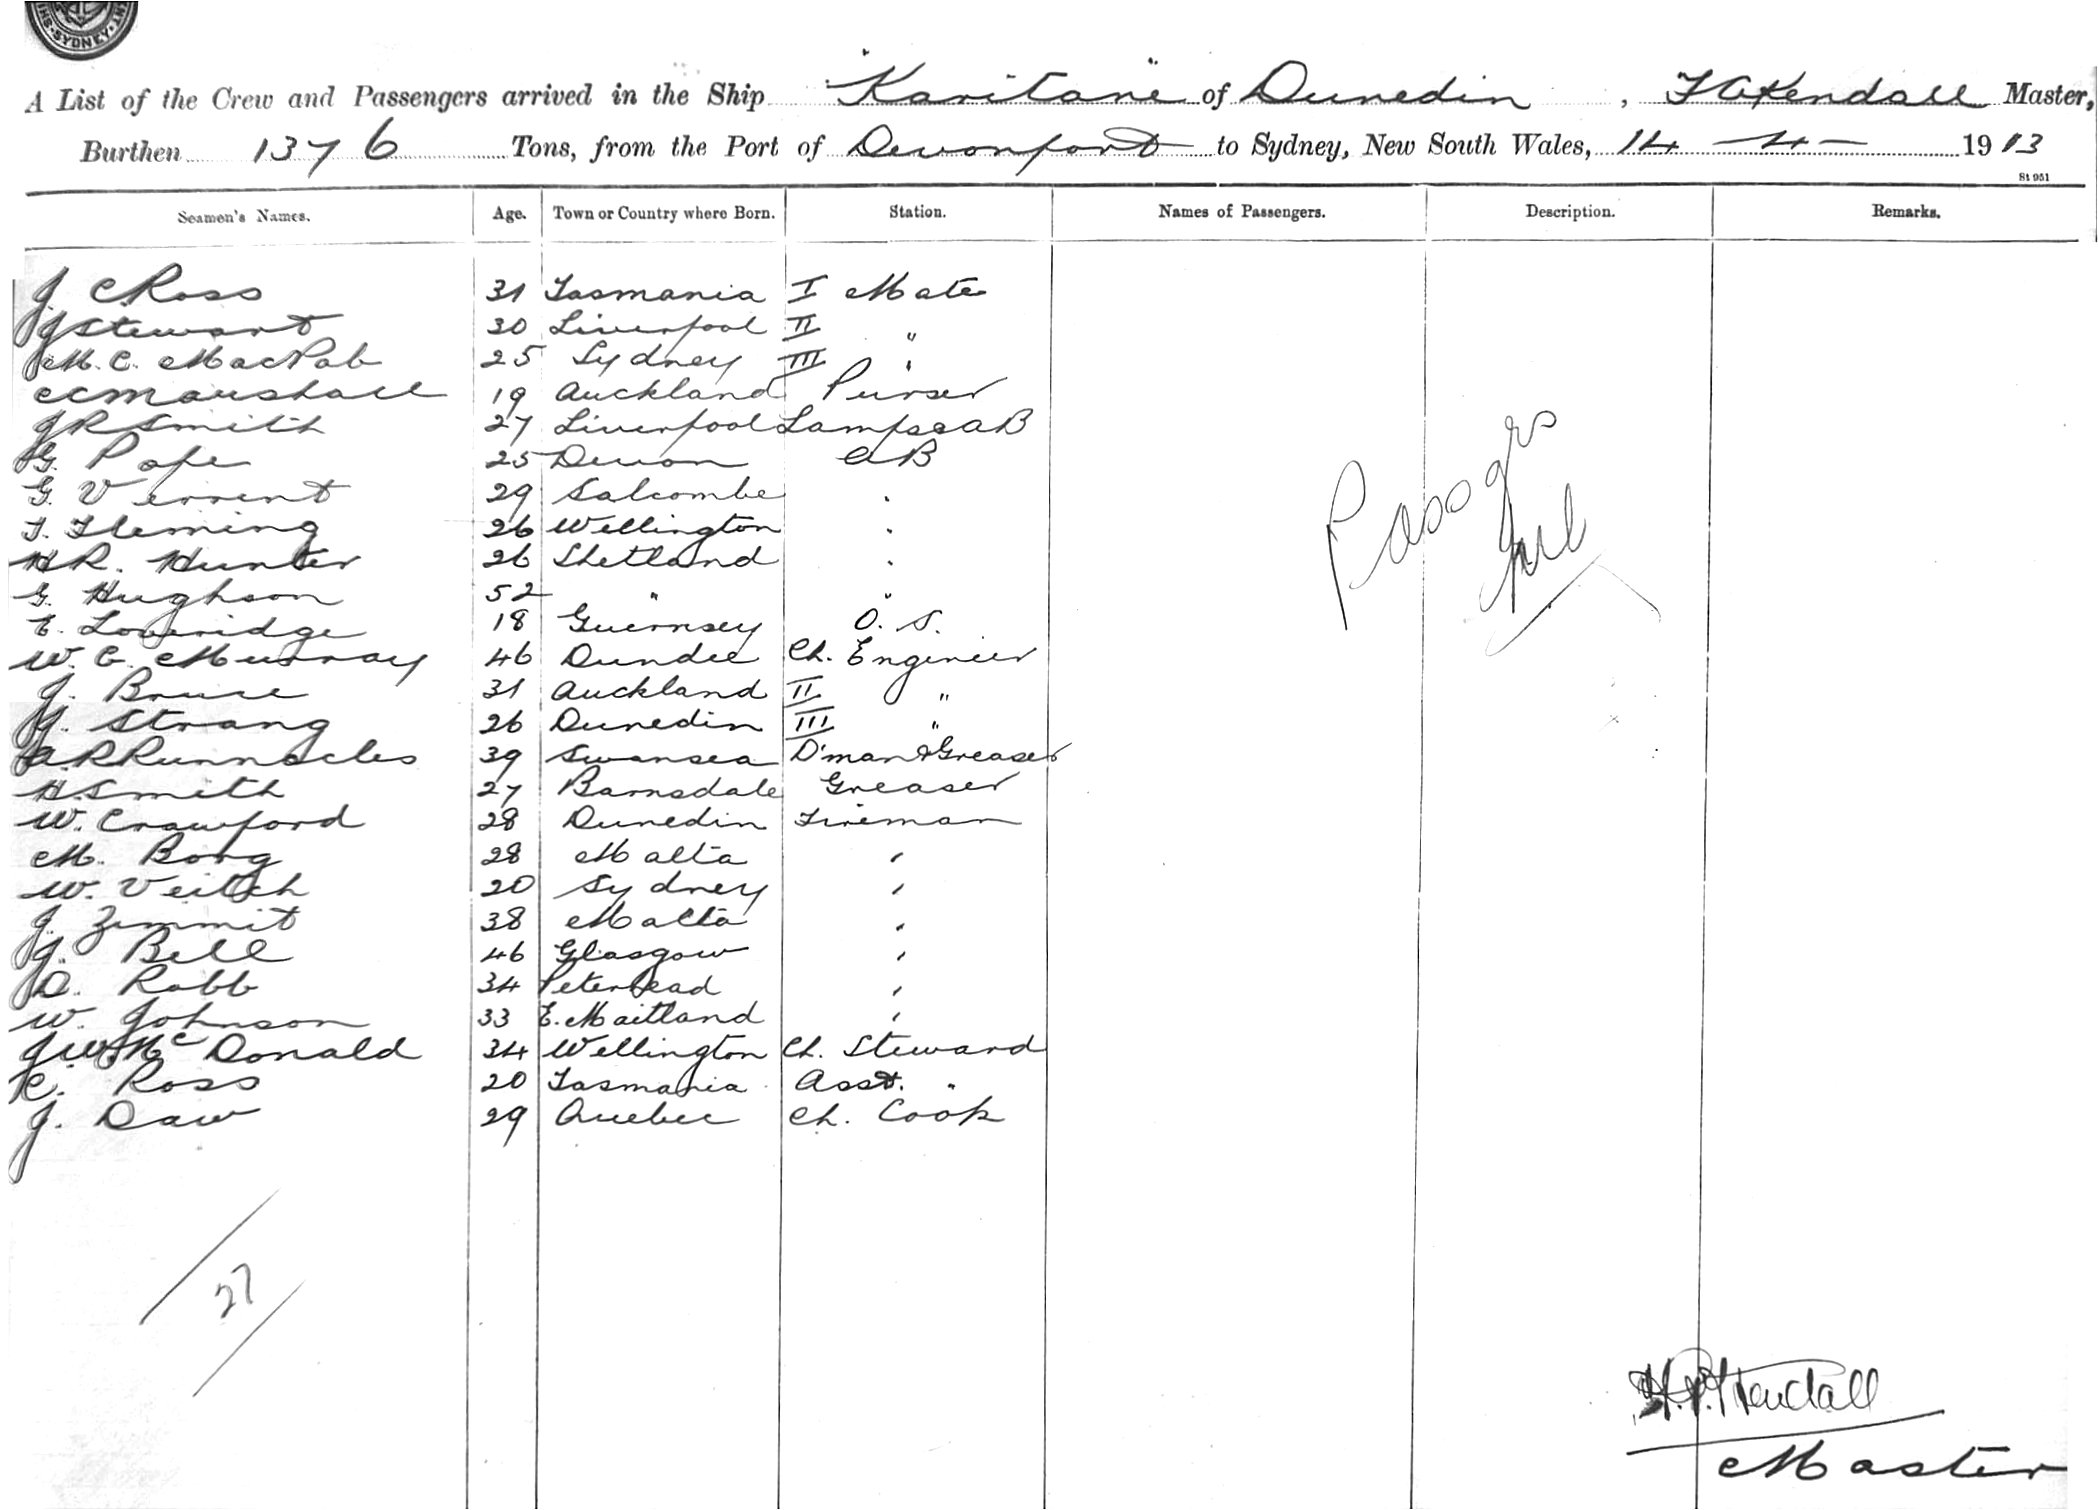 SYDNEY
A List of the Crew and Passengers arrived in the Ship "Karitane" of Dunedin, F A Kendall Master,
Burthen 1376 Tons, from the Port of Devonport to Sydney, New South Wales, 14 - 4 - 1913
St 951
Seamen's Names. Age. Town or Country where Born. Station. Names of Passengers. Description. Remarks.
J. C Ross 31 Tasmania I Mate
J Stewart 30 Liverpool II "
M. C. MacNab 25 Sydney III "
C C Marshall 19 Auckland Purser
J R Smith 27 Liverpool Lamps & AB
G. Pope 25 Devon AB
G. Verrent 29 Salcombe "
T. Fleming 26 Wellington "
H R. Hunter 26 Shetland "
G. Hughson 52 " "
E. Loveridge 18 Guernsey O. S.
W. C. Murray 46 Dundee Ch. Engineer
J. Bruce 31 Auckland II "
J. Strang 26 Dunedin III "
A. R Runnacles 39 Swansea D'man & Greaser
H. Smith 27 Barnsdale Greaser
W. Crawford 28 Dunedin Fireman
M. Borg 28 Malta "
W. Veitch 20 Sydney "
J. Zemmit 38 Malta "
J. Bell 46 Glasgow "
D. Robb 34 Peterhead "
W. Johnson 33 E. Maitland "
J W Mc Donald 34 Wellington Ch. Steward
C. Ross 20 Tasmania Asst. "
J. Daw 29 Quebec Ch. Cook
Passgrs
Nil
27
Kendall
Master